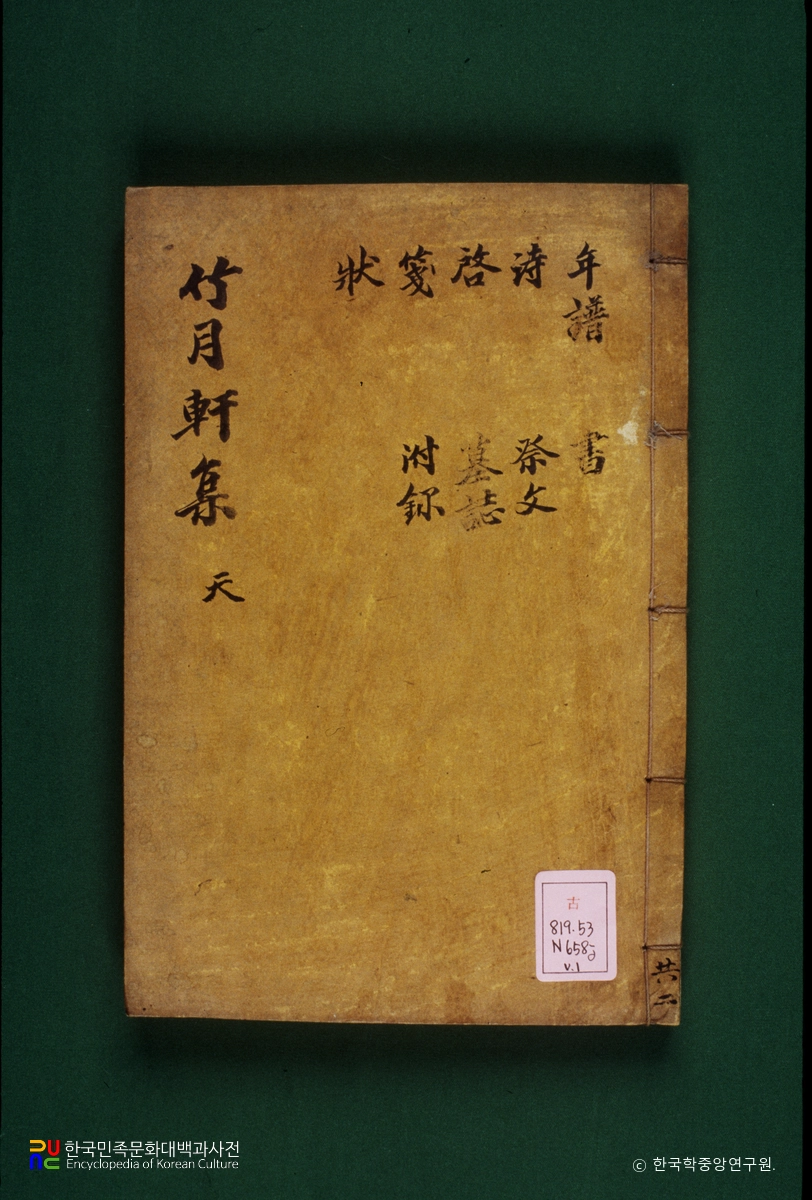 年譜 書
詩 祭文
啓 墓誌
箋 附錄
狀
竹月軒集 天
古
819.53
N658
v.1
共二
한국민족문화대백과사전
Encyclopedia of Korean Culture
© 한국학중앙연구원.